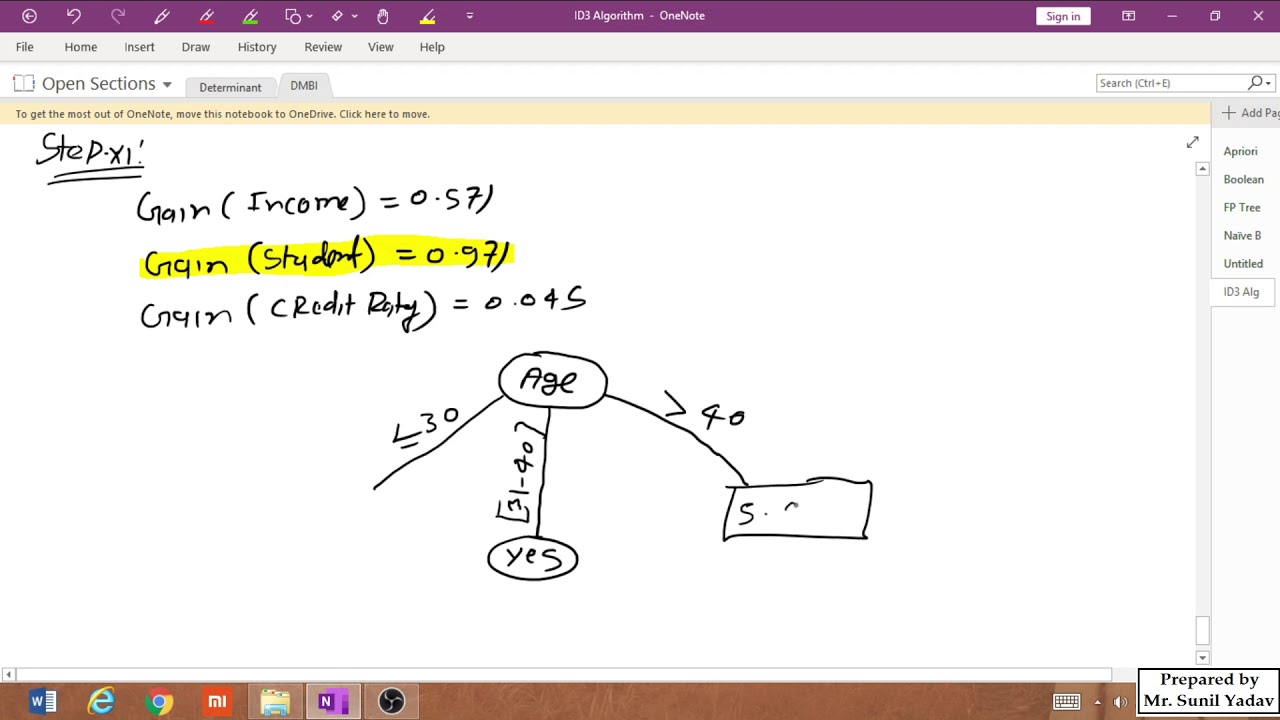 ID3 Algorithm - OneNote
Sign in
File Home Insert Draw History Review View Help
Open Sections Determinant DMBI
Search (Ctrl+E)
To get the most out of OneNote, move this notebook to OneDrive. Click here to move.
Add Pag
Apriori
Boolean
FP Tree
Naïve B
Untitled
ID3 Alg
Step-XI:
Gain (Income) = 0.571
Gain (Student) = 0.971
Gain (Credit Raty) = 0.045
Age
≤30
[31-40]
> 40
S.
yes
Prepared by
Mr. Sunil Yadav